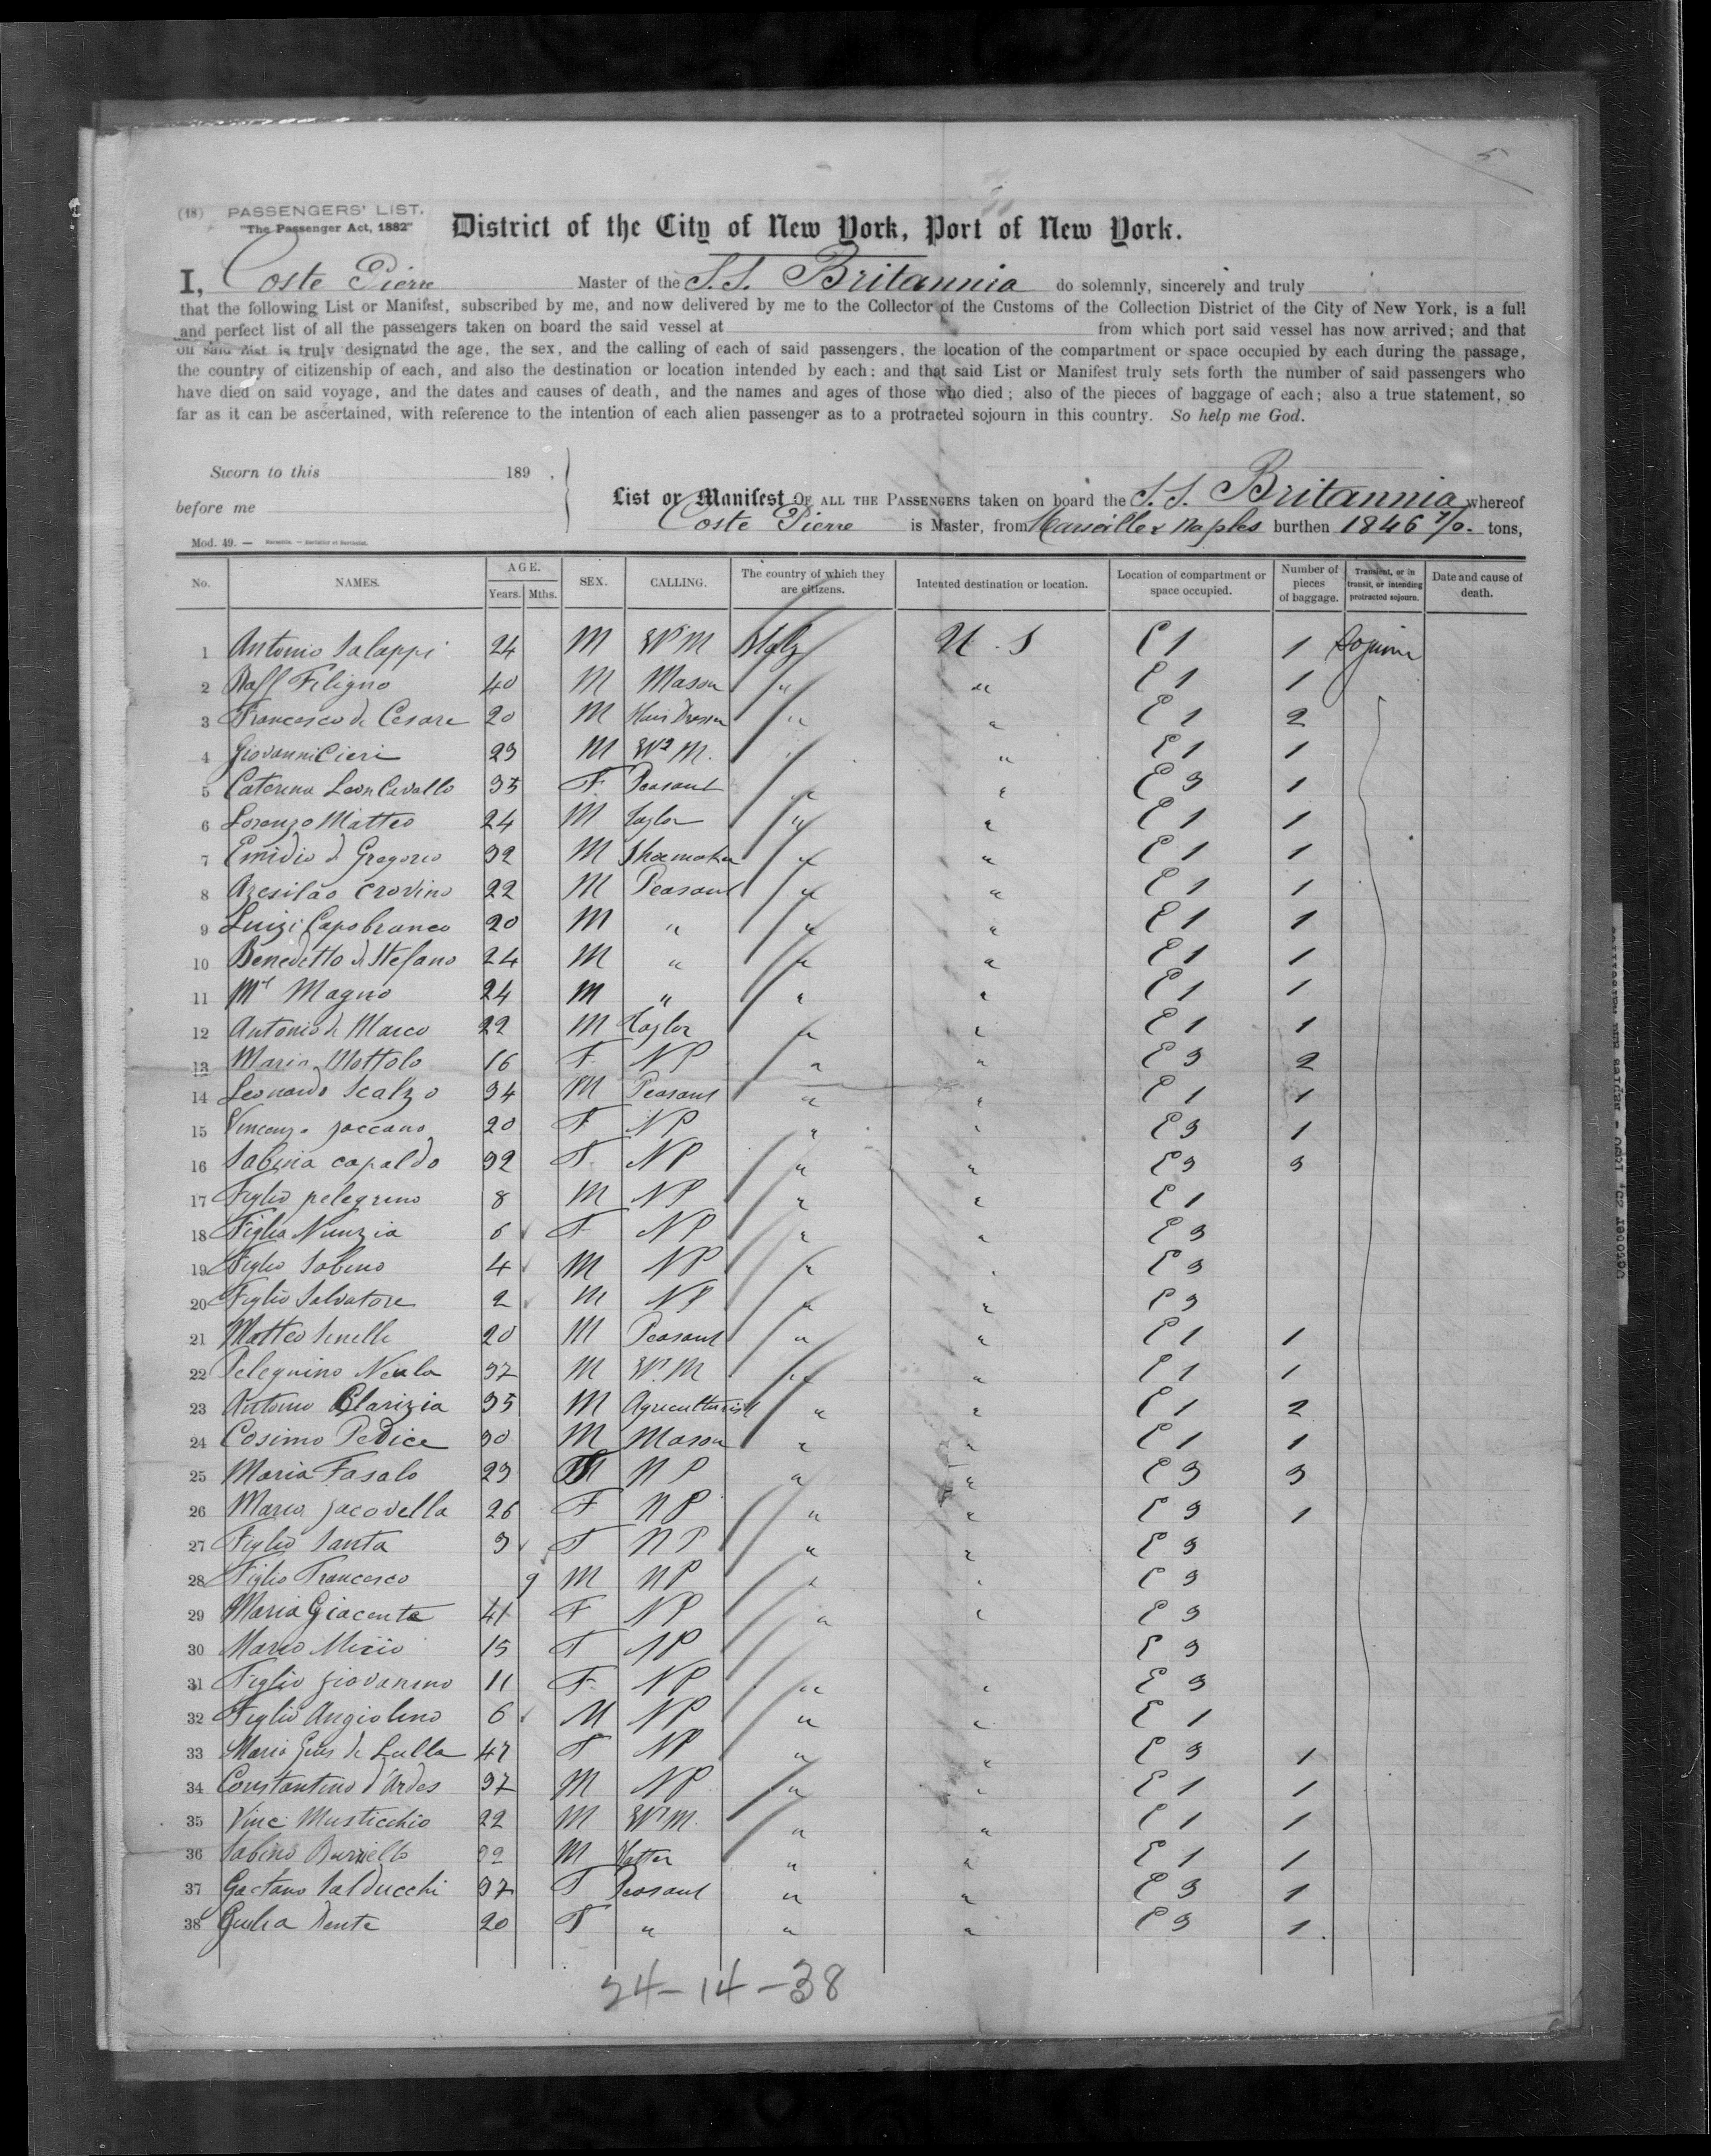 5
(18) PASSENGERS' LIST.
"The Passenger Act, 1882"
District of the City of New York, Port of New York.
I, Coste Pierre Master of the S.S. Britannia do solemnly, sincerely and truly
that the following List or Manifest, subscribed by me, and now delivered by me to the Collector of the Customs of the Collection District of the City of New York, is a full
and perfect list of all the passengers taken on board the said vessel at from which port said vessel has now arrived; and that
on said list is truly designated the age, the sex, and the calling of each of said passengers, the location of the compartment or space occupied by each during the passage,
the country of citizenship of each, and also the destination or location intended by each: and that said List or Manifest truly sets forth the number of said passengers who
have died on said voyage, and the dates and causes of death, and the names and ages of those who died; also of the pieces of baggage of each; also a true statement, so
far as it can be ascertained, with reference to the intention of each alien passenger as to a protracted sojourn in this country. So help me God.
Sworn to this 189 .
before me
List or Manifest OF ALL THE PASSENGERS taken on board the S.S. Britannia whereof
Coste Pierre is Master, from Marseille & Naples burthen 1846 tons,
Mod. 49. — Marseille. — Barlatier et Barthelet.
No. NAMES. AGE. Years. Mths. SEX. CALLING. The country of which they are citizens. Intented destination or location. Location of compartment or space occupied. Number of pieces of baggage. Transient, or in transit, or intending protracted sojourn. Date and cause of death.
1 Antonio Salappi 24 M W M Italy U.S E 1 1
2 Raff Filigno 40 M Mason " " E 1 1
3 Francesco de Cesare 20 M Hair Dresser " " E 1 2
4 Giovanni Cieri 23 M W M. " " E 1 1
5 Caterina Leon Cavallo 35 F Peasant " " E 3 1
6 Lorenzo Matteo 24 M Taylor " " E 1 1
7 Emidio d Gregorio 32 M Shoemaker " " E 1 1
8 Azesilao Crovino 22 M Peasant " " E 1 1
9 Luigi Capobranco 20 M " " " E 1 1
10 Benedetto d Stefano 24 M " " " E 1 1
11 Ml Magno 24 M " " " E 1 1
12 Antonio de Marco 22 M Taylor " " E 1 1
13 Maria Mottolo 16 F NP " " E 3 2
14 Leonardo Scalzo 34 M Peasant " " E 1 1
15 Vincenza Jaccano 20 F NP " " E 3 1
16 Sabina Capaldo 32 F NP " " E 3 3
17 Figlio pelegrino 8 M NP " " E 1
18 Figlia Nunzia 6 F NP " " E 3
19 Figlio Sabino 4 M NP " " E 3
20 Figlio Salvatore 2 M NP " " E 3
21 Matteo 20 M Peasant " " E 1 1
22 Pelegrino 37 M W M " " E 1 1
23 Antonio Clarizia 35 M Agriculturist " " E 1 2
24 Cosimo Pedice 30 M Mason " " E 1 1
25 Maria Fasalo 23 F NP " " E 3 3
26 Maria Jacovella 26 F NP " " E 3 1
27 Figlio Santa 3 F NP " " E 3
28 Figlio Francesco 9 M NP " " E 3
29 Maria Giacenta 41 F NP " " E 3
30 Maria 15 F NP E 3
31 Figlio Giovannino 11 F NP " " E 3
32 Figlio Angiolino 6 M NP " " E 1
33 Maria de Lulla 47 F NP " " E 3 1
34 Constantino d'Ardes 37 M NP " " E 1 1
35 Vinc Musticchio 22 M W M " " E 1 1
36 Sabino M Hatter " " E 1 1
37 Gaetano Salducchi 37 F Peasant " " E 3 1
38 Giulia Dente 20 F " " " E 3 1
24 - 14 - 38